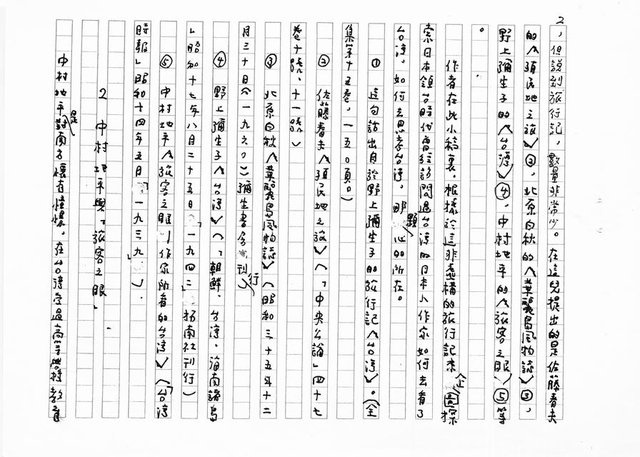 2，但說到旅行記，數量非常少。在這兒提出的是佐藤春夫
的《殖民地之旅》③，北原白秋的《華麗島風物誌》③，
野上彌生子的《台灣》④，中村地平的《旅客之眼》⑤等
。
作者在此小稿裏，根據於這非虛構的旅行記來企圖探
索日本領台時代曾經訪問過台灣的日本人作家如何去看了
台灣，如何去思考台灣，那題心的所在。
① 這句話出自於野上彌生子的旅行記《台灣》。（全
集第十五卷，一五〇頁。）
② 佐藤春夫《殖民地之旅》（「中央公論」四十七
卷十號、十一號）
③ 北原白秋《華麗島風物誌》（昭和三十五年十二
月三十日（一九六〇）彌生書房刊行）
④ 野上彌生子《台灣》（「朝鮮、台灣，海南諸島
」昭和十七年八月二十五日（一九四二）拓南社刊行）
⑤ 中村地平《旅客之眼—作家所看的台灣》（「台灣
時報」昭和十四年五月（一九三九））。
2 中村地平與「旅客之眼」
中村地平是對南方懷有憧憬，在台灣受過高等學校教育